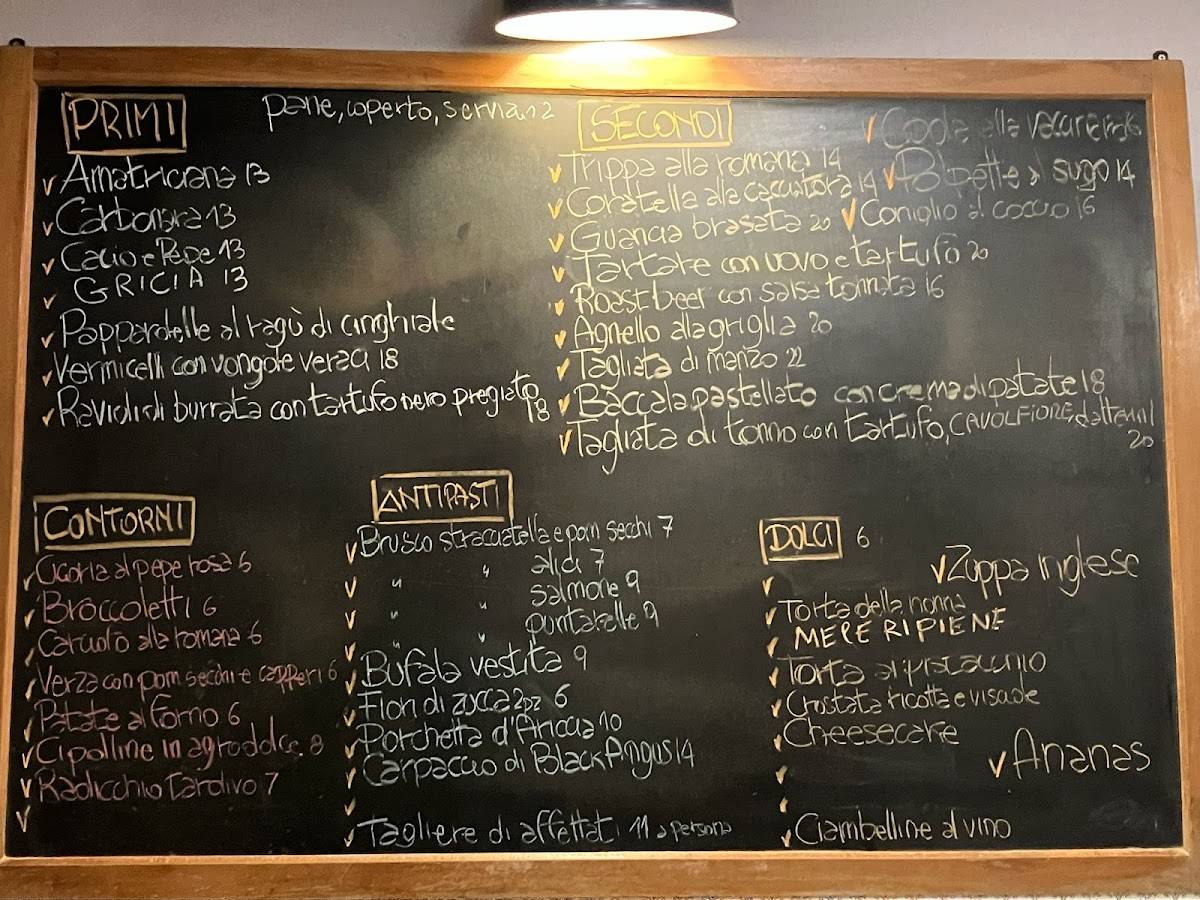 PRIMI
pane, coperto, servizio 2
Amatriciana 13
Carbonara 13
Cacio e Pepe 13
GRICIA 13
Pappardelle al ragù di cinghiale
Vermicelli con vongole veraci 18
Ravioli di burrata con tartufo nero pregiato
18
SECONDI
Trippa alla romana 14
Coratella alla cacciatora 14
Guancia brasata 20
Tartare con uovo e tartufo 20
Roastbeef con salsa tonnata 16
Agnello alla griglia 20
Tagliata di manzo 22
Baccala pastellato con crema di patate 18
Tagliata di tonno con tartufo, CAVOLFIORE, datterini
20
Coda alla vaccinara 16
Polpette al sugo 14
Coniglio al coccio 16
CONTORNI
Cicoria al pepe rosa 6
Broccoletti 6
Carciofo alla romana 6
Verza con pom secchi e capperi 6
Patate al forno 6
Cipolline in agrodolce 8
Radicchio tardivo 7
ANTIPASTI
Brusco stracciatella e pom secchi 7
" " alici 7
" " salmone 9
" " puntarelle 9
Bufala vestita 9
Fiori di zucca 2pz 6
Porchetta d'Ariccia 10
Carpaccio di Black Angus 14
Tagliere di affettati 11 a persona
DOLCI 6
Zuppa inglese
Torta della nonna
MELE RIPIENE
Torta al pistacchio
Crostata ricotta e visciole
Cheesecake
Ananas
Ciambelline al vino